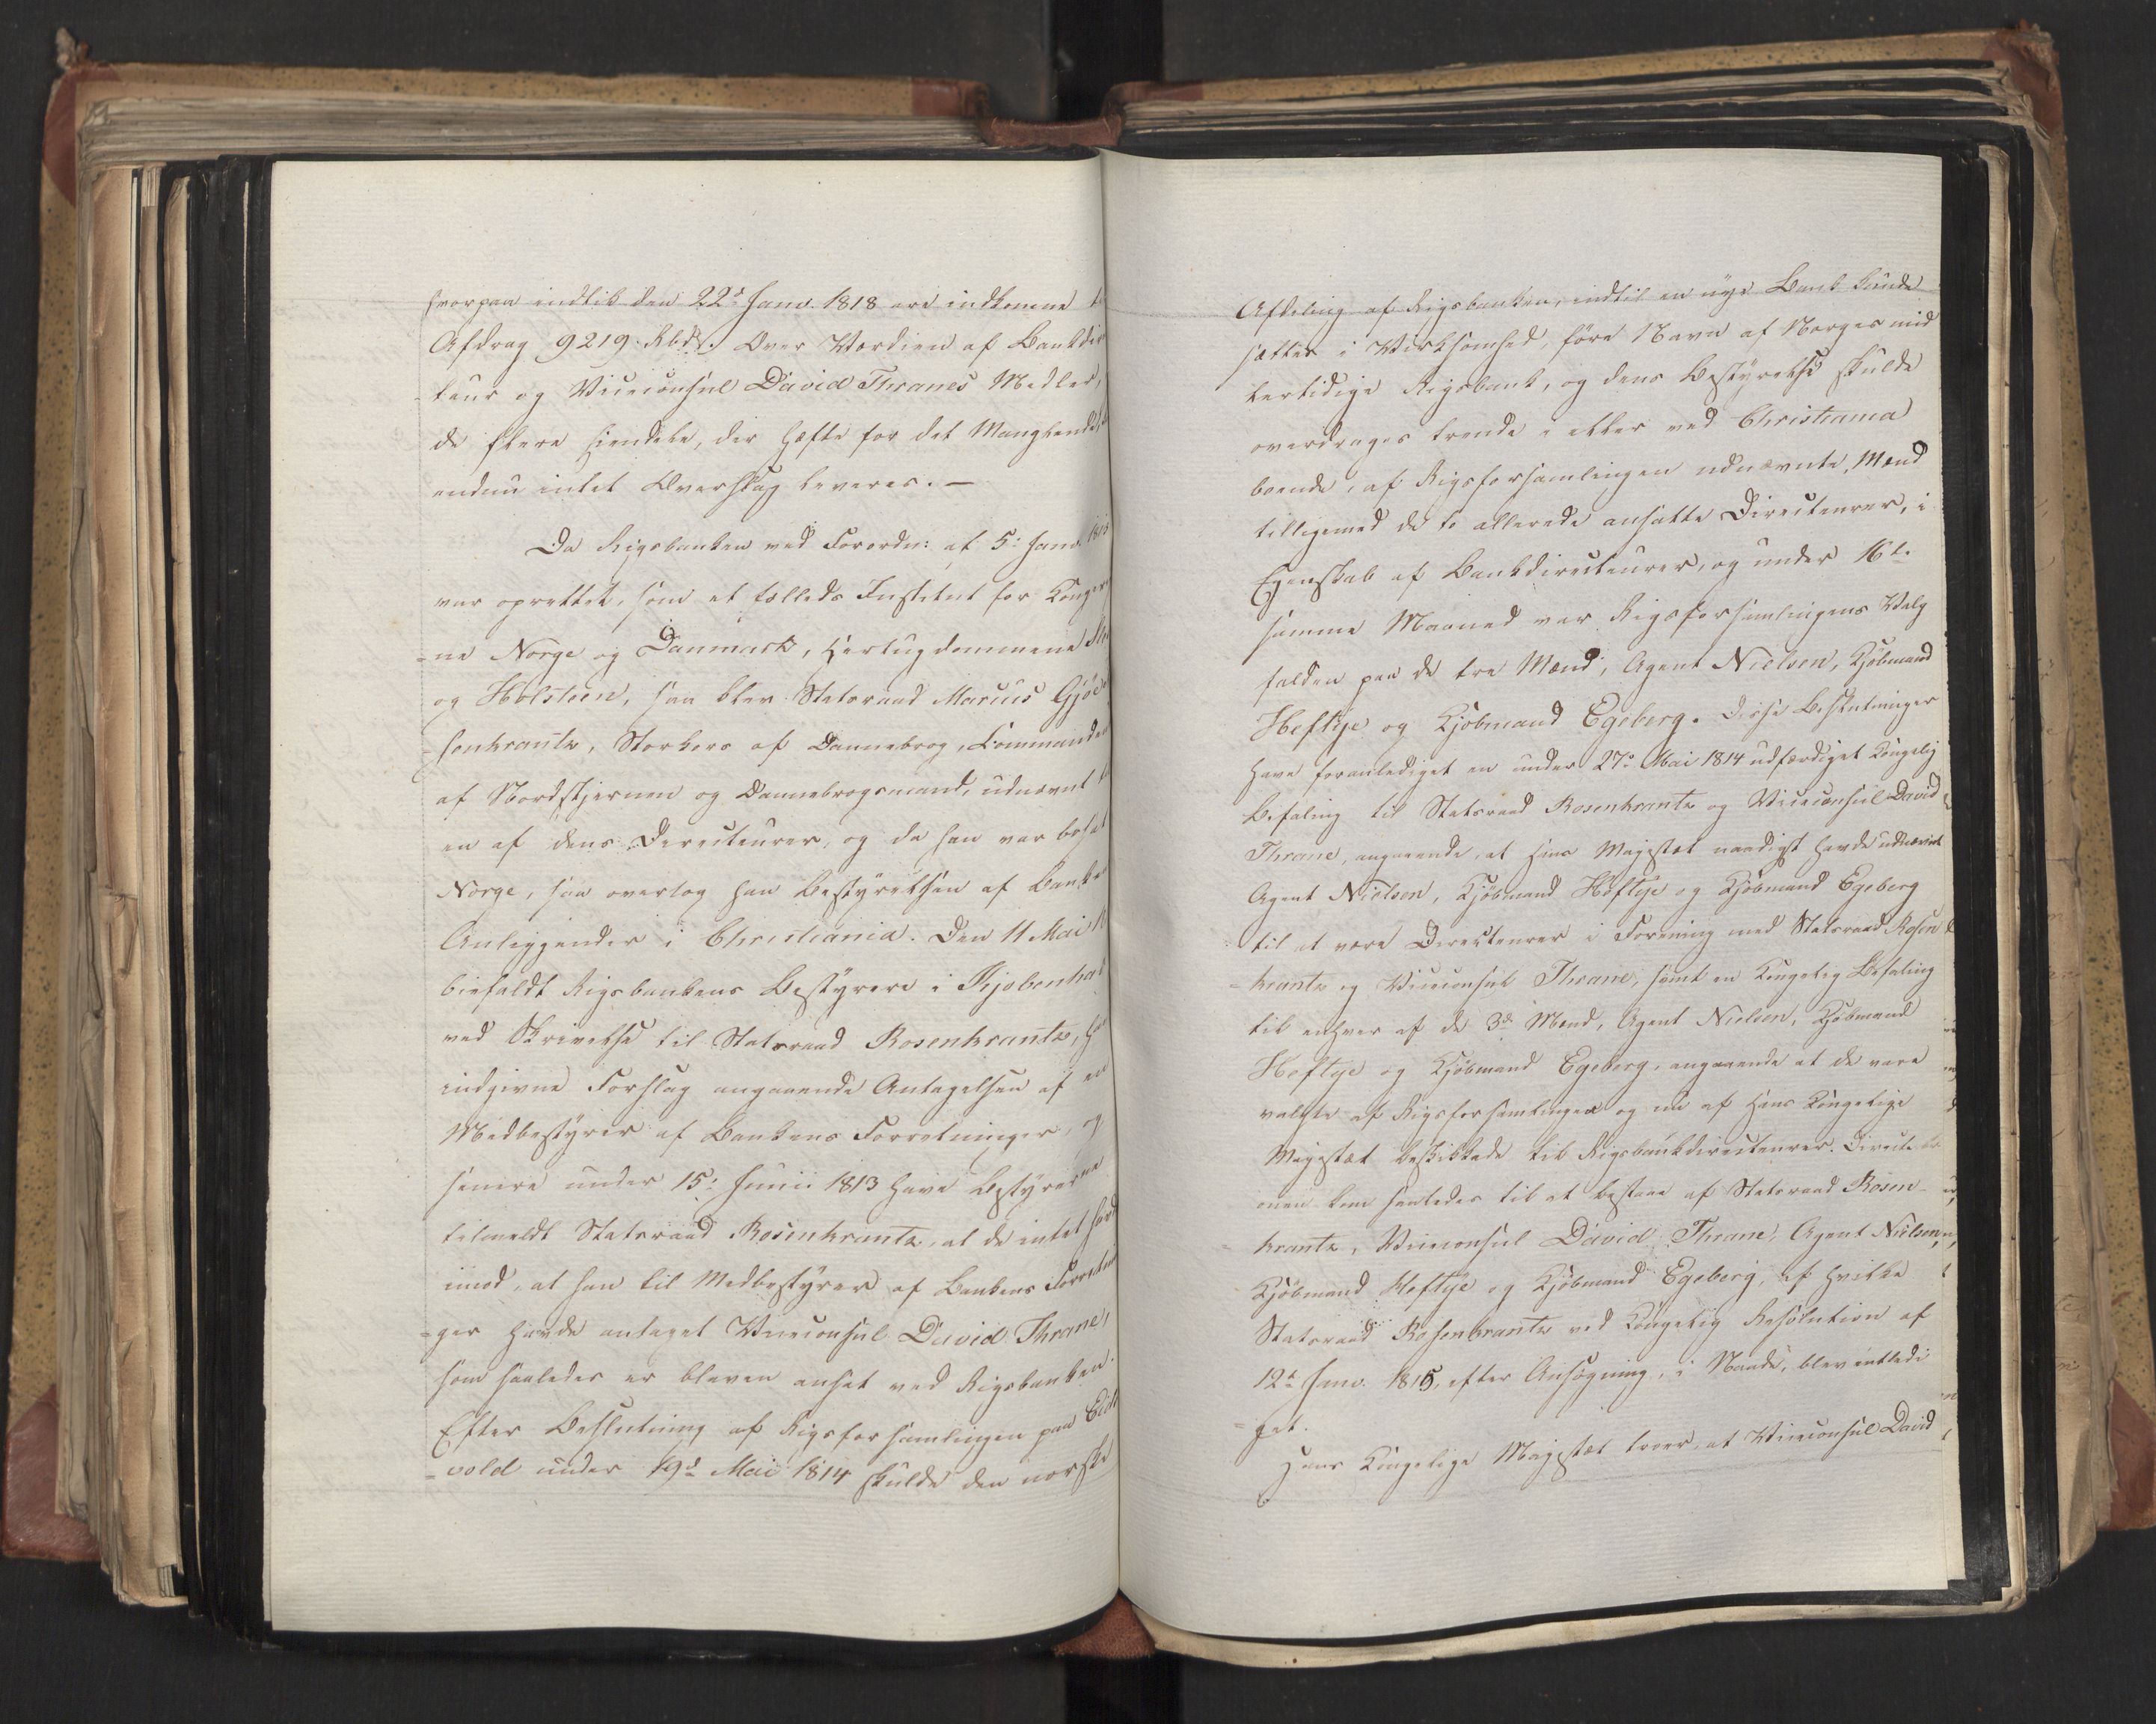 hvorpaa indtil den 22d Janv. 1818 ere indkomne
Afdrag 9219 Rbdr. Over Værdien af Bankdirec
teur og Viceconsul David Thranes Midler,
de flere hændele, der hæfte for det Manglende,
endnu intet Overslag leveres. —
Da Rigsbanken ved Forordn: af 5: Janv. 1813
var oprettet, som et fælleds Institut for Konger
=ne Norge og Danmark, Hertugdommene
og Holsteen, saa blev Statsraad Marcus Gjøe
=senkrantz, Storkors af Dannebrog, Commandeur
af Nordstjernen og Dannebrogsmand, udnævnt
en af dens Directeurer, og da han var bosat
Norge, saa overtog han Bestyrelsen af Bankens
Anliggender i Christiania. Den 11 Mai
bifaldt Rigsbankens Bestyrere i Kjøbenhav
ved Skrivelse til Statsraad Rosenkrantz,
indgivne Forslag angaaende Antagelsen af en
Medbestyrer af Bankens Forretninger, og
senere under 15: Junii 1813 have Bestyrerne
tilmeldt Statsraad Rosenkrantz, at de intet havd
imod, at han til Medbestyrer af Bankens Forretnin
=ger havde antaget Viceconsul David Thrane,
som saaledes er bleven ansat ved Rigsbanken.
Efter Beslutning af Rigsforsamlingen paa Eids
=vold under 19d Mai 1814 skulde den norske
Afdeling af Rigsbanken, indtil en nye Bank kunde
sættes i Virksomhed, føre Navn af Norges mid
lertidige Rigsbank, og dens Bestyrelse skulde
overdrages trende i eller ved Christiania
boende, af Rigsforsamlingen udnævnte, Mænd
tilligemed de to allerede ansatte Directeurer, i
Egenskab af Bankdirecteurer, og under 16t.
samme Maaned var Rigsforsamlingens Valg
falden paa de tre Mænd, Agent Nielsen, Kjøbmand
Heftye og Kjøbmand Egeberg. Disse Beslutninger
have foranlediget en under 27: Mai 1814 udfærdiget Kongelig
Befaling til Statsraad Rosenkrantz og Viceconsul David
Thrane, angaaende, at Hans Majestæt naadigst havde udnævnt
Agent Nielsen, Kjøbmand Heftye og Kjøbmand Egeberg
til at være Directeurer i Forening med Statsraad Rosen
=krantz og Viceconsul Thrane, samt en Kongelig Befaling
til enhver af de 3de Mænd, Agent Nielsen, Kjøbmand
Heftye og Kjøbmand Egeberg, angaaende at de vare
valgte af Rigsforsamlingen og nu af Hans Kongelige
Majestæt beskikkede til Rigsbankdirecteurer. Directi
onen kom saaledes til at bestaae af Statsraad Rosen-
krantz, Viceconsul David Thrane, Agent Nielsen,
Kjøbmand Heftye og Kjøbmand Egeberg, af hvilke
Statsraad Rosenkrantz ved Kongelig Resolution af
12te Janv. 1815, efter Ansøgning, i Naade, blev entledi
=get.
Hans Kongelige Majestæt troer, at Viceconsul David